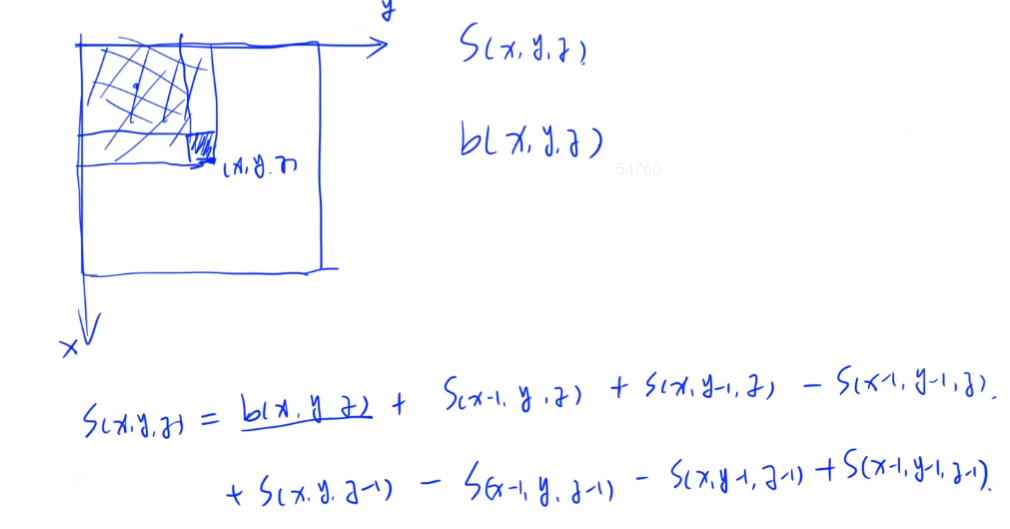 y
S(x, y, z)
b(x, y, z)
54760
(x, y, z)
x
S(x, y, z) = b(x, y, z) + S(x-1, y, z) + S(x, y-1, z) - S(x-1, y-1, z).
+ S(x, y, z-1) - S(x-1, y, z-1) - S(x, y-1, z-1) + S(x-1, y-1, z-1).